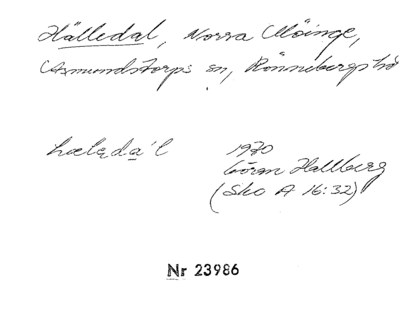 Hälledal, Norra Möinge,
Asmundstorps sn, Rönnebergs hd
hælęda´l 1970
Göran Hallberg
(Sko A 16:32)
Nr 23986